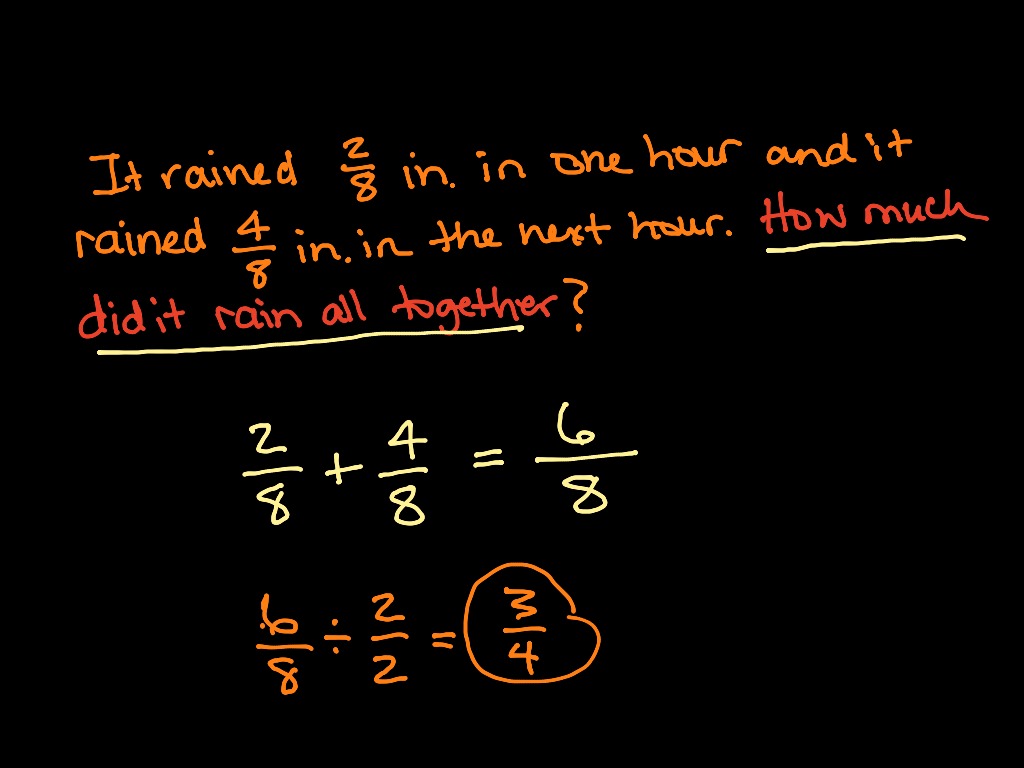 It rained 2/8 in. in one hour and it
rained 4/8 in. in the next hour. How much
did it rain all together?
2/8 + 4/8 = 6/8
6/8 ÷ 2/2 = 3/4